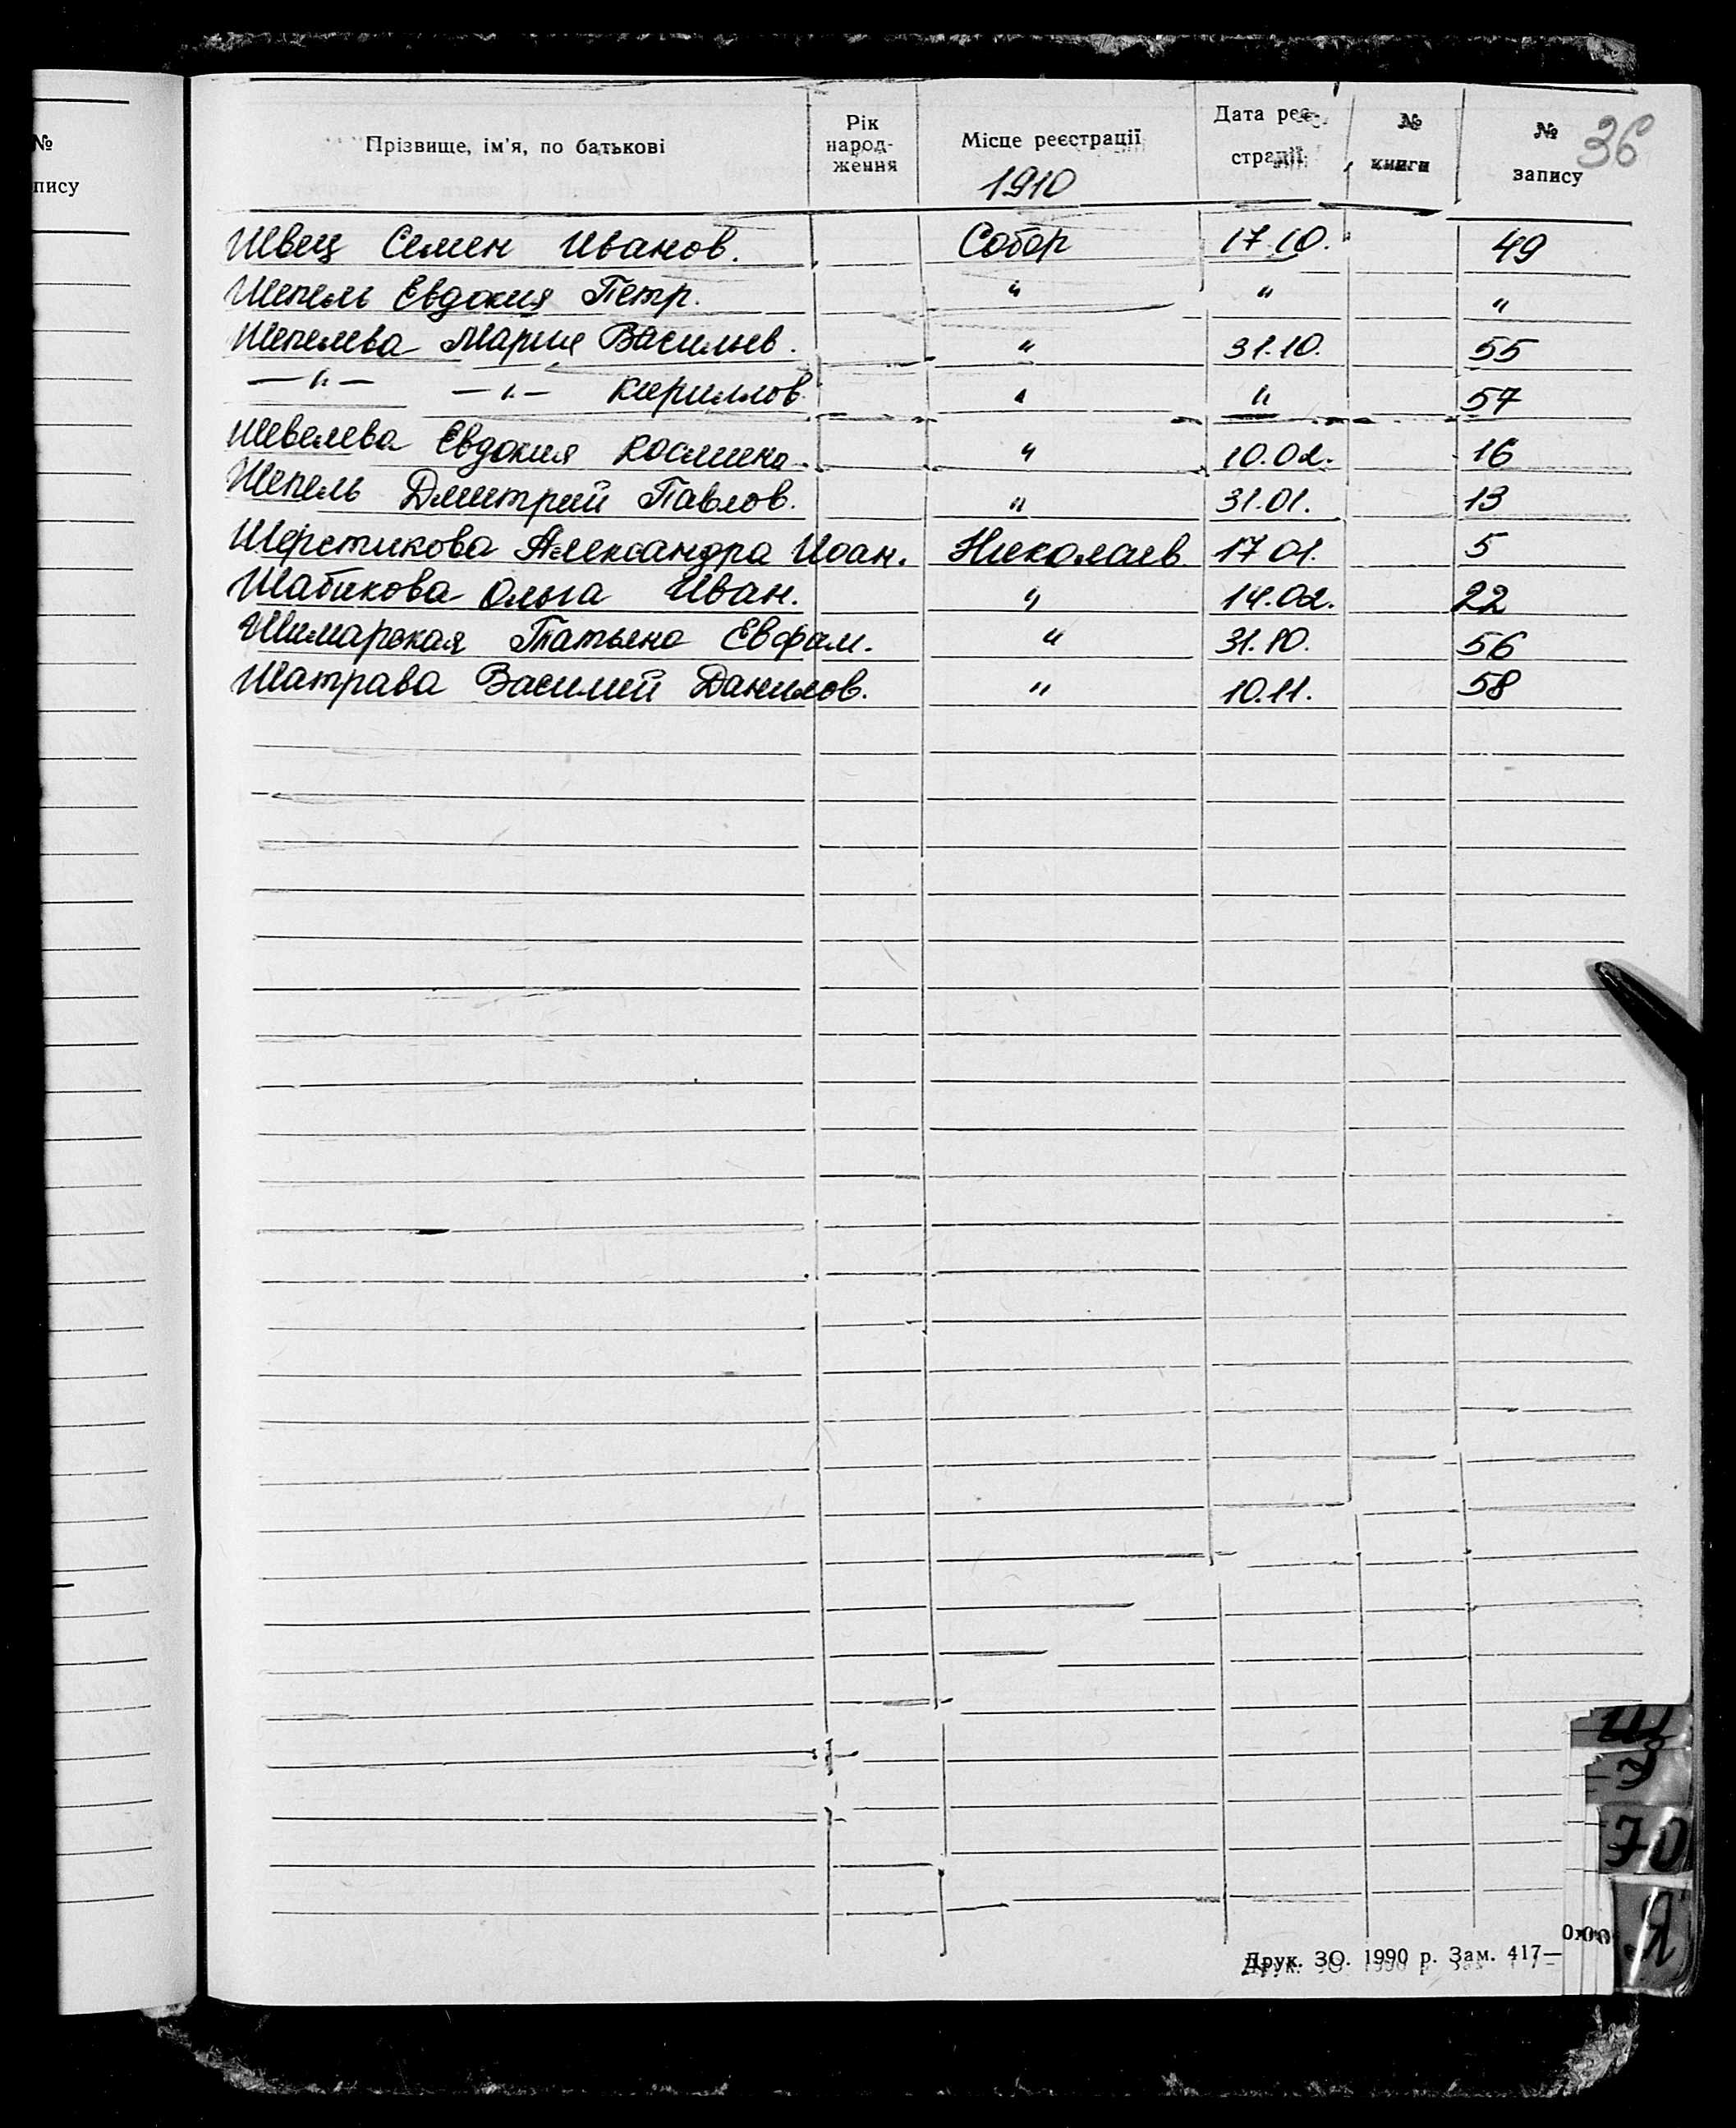 №
пису
Прізвище, ім'я, по батькові
Рік
народ-
ження
Місце реєстрації
1910
Дата реє-
страції
№
книги
№
запису
36
Швец Семен Иванов. Собор 17.10. 49
Шепель Евдокия Петр. " " "
Шепелева Мария Васильев. " 31.10. 55
—"— —"— Кириллов " " 57
Шевелева Евдокия Космина. " 10.02. 16
Шепель Дмитрий Павлов. " 31.01. 13
Шерстикова Александра Иоан. Николаев. 17 01. 5
Шабикова Ольга Иван. " 14.02. 22
Шимарская Татьяна Евфим. " 31.10. 56
Шатрава Василий Данилов. " 10.11. 58
Ш
Э
Ю
Я
Друк. ЗО. 1990 р. Зам. 417—